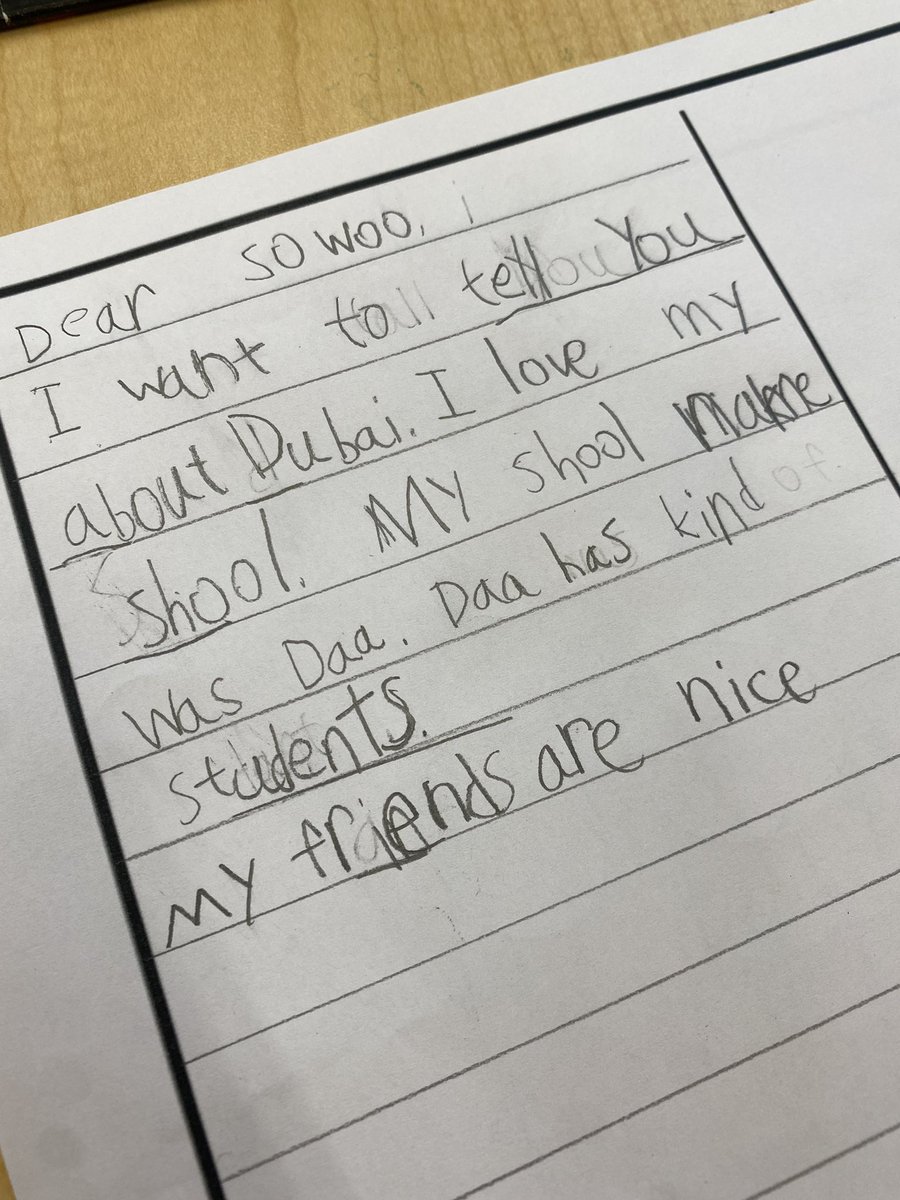 Dear sowoo,
I want to tell You
about Dubai. I love my
shool. My shool
was Daa. Daa has kind
students.
my friends are nice